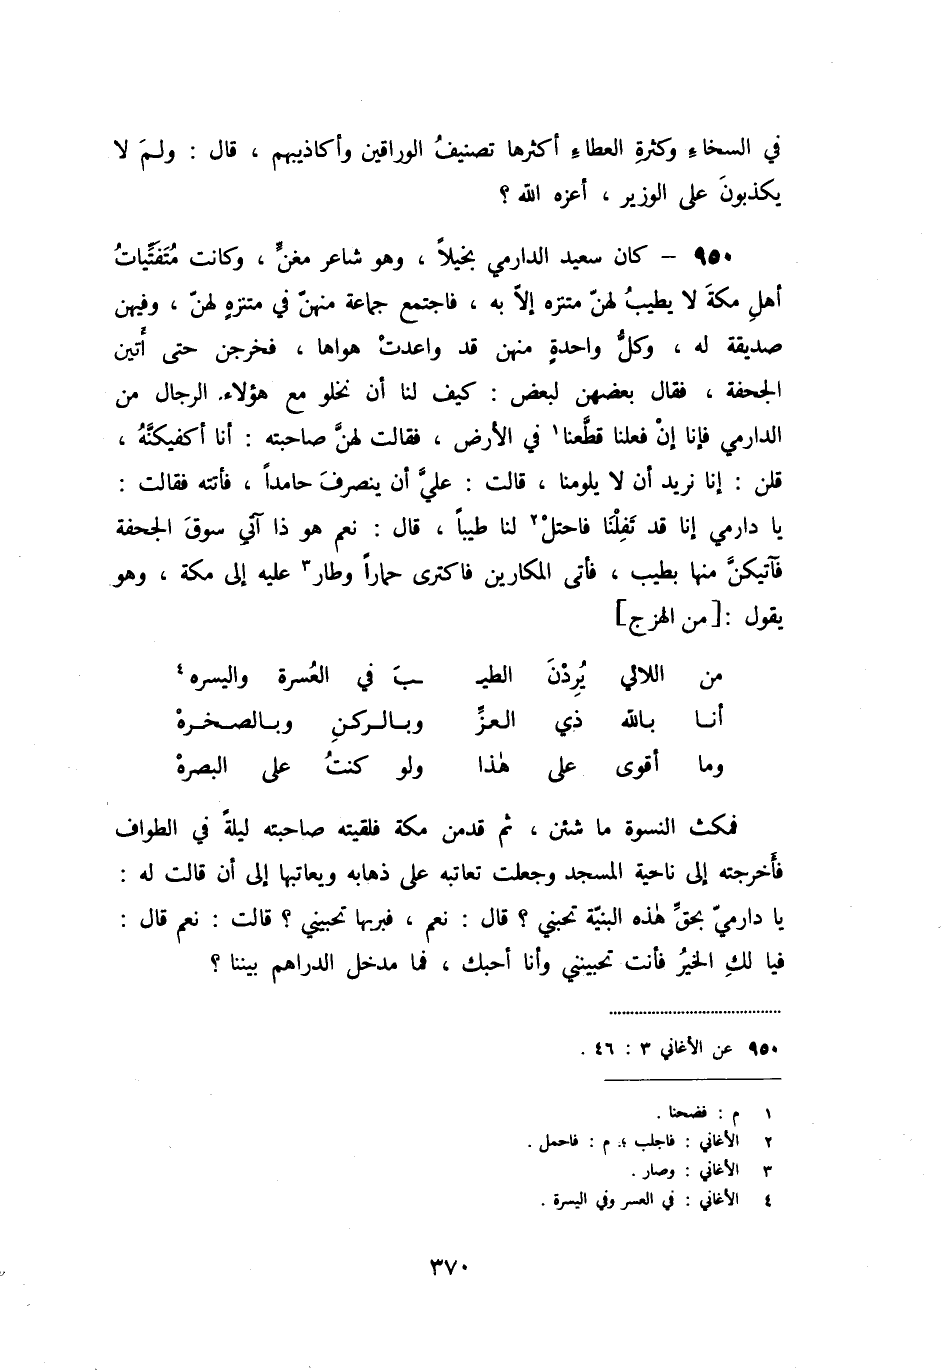 في السخاءِ وكثرةِ العطاءِ أكثرها تصنيفُ الوراقين وأكاذيبهم ، قال : ولـمَ لا
يكذبونَ على الوزير ، أعزه الله ؟
٩٥٠ – كان سعيد الدارمي بخيلاً ، وهو شاعر مغنٍّ ، وكانت مُتَفَتِّيَاتُ
أهلِ مكةَ لا يطيبُ لهنّ متنزه إلاّ به ، فاجتمع جماعة منهنّ في متنزهٍ لهنّ ، وفيهن
صديقة له ، وكلُّ واحدةٍ منهن قد واعدتْ هواها ، فخرجن حتى أَتين
الجحفة ، فقال بعضهن لبعض : كيف لنا أن نخلو مع هؤلاء الرجال من
الدارمي فإنا إنْ فعلنا قطَّعنا١ في الأرض ، فقالت لهنَّ صاحبته : أنا أكفيكنَّهُ ،
قلن : إنا نريد أن لا يلومنا ، قالت : عليَّ أن ينصرفَ حامداً ، فأتته فقالت :
يا دارمي إنا قد تَفِلْنَا فاحتلْ٢ لنا طيباً ، قال : نعم هو ذا آتي سوقَ الجحفة
فآتيكنَّ منها بطيب ، فأتى المكارين فاكترى حماراً وطار٣ عليه إلى مكة ، وهو
يقول :[من الهزج]
من اللالي يُرِدْنَ الطيـ ـبَ في العُسرة واليسره٤
أنـا بـالله ذي الـعزِّ وبـالـركنِ وبـالصـخـرهْ
وما أقوى على هٰذا ولو كنتُ على البصرهْ
فمكث النسوة ما شئن ، ثم قدمن مكة فلقيته صاحبته ليلةً في الطواف
فأَخرجته إلى ناحية المسجد وجعلت تعاتبه على ذهابه ويعاتبها إلى أن قالت له :
يا دارميّ بحقِّ هٰذه البنيّة تحبني ؟ قال : نعم ، فبربها تحبيني ؟ قالت : نعم قال :
فيا لكِ الخيرُ فأنت تحبينني وأنا أحبك ، فما مدخل الدراهم بيننا ؟
٩٥٠ عن الأغاني ٣ : ٤٦ .
١ م : فضحنا .
٢ الأغاني : فاجلب ؛ م : فاحمل .
٣ الأغاني : وصار .
٤ الأغاني : في العسر وفي اليسرة .
٣٧٠